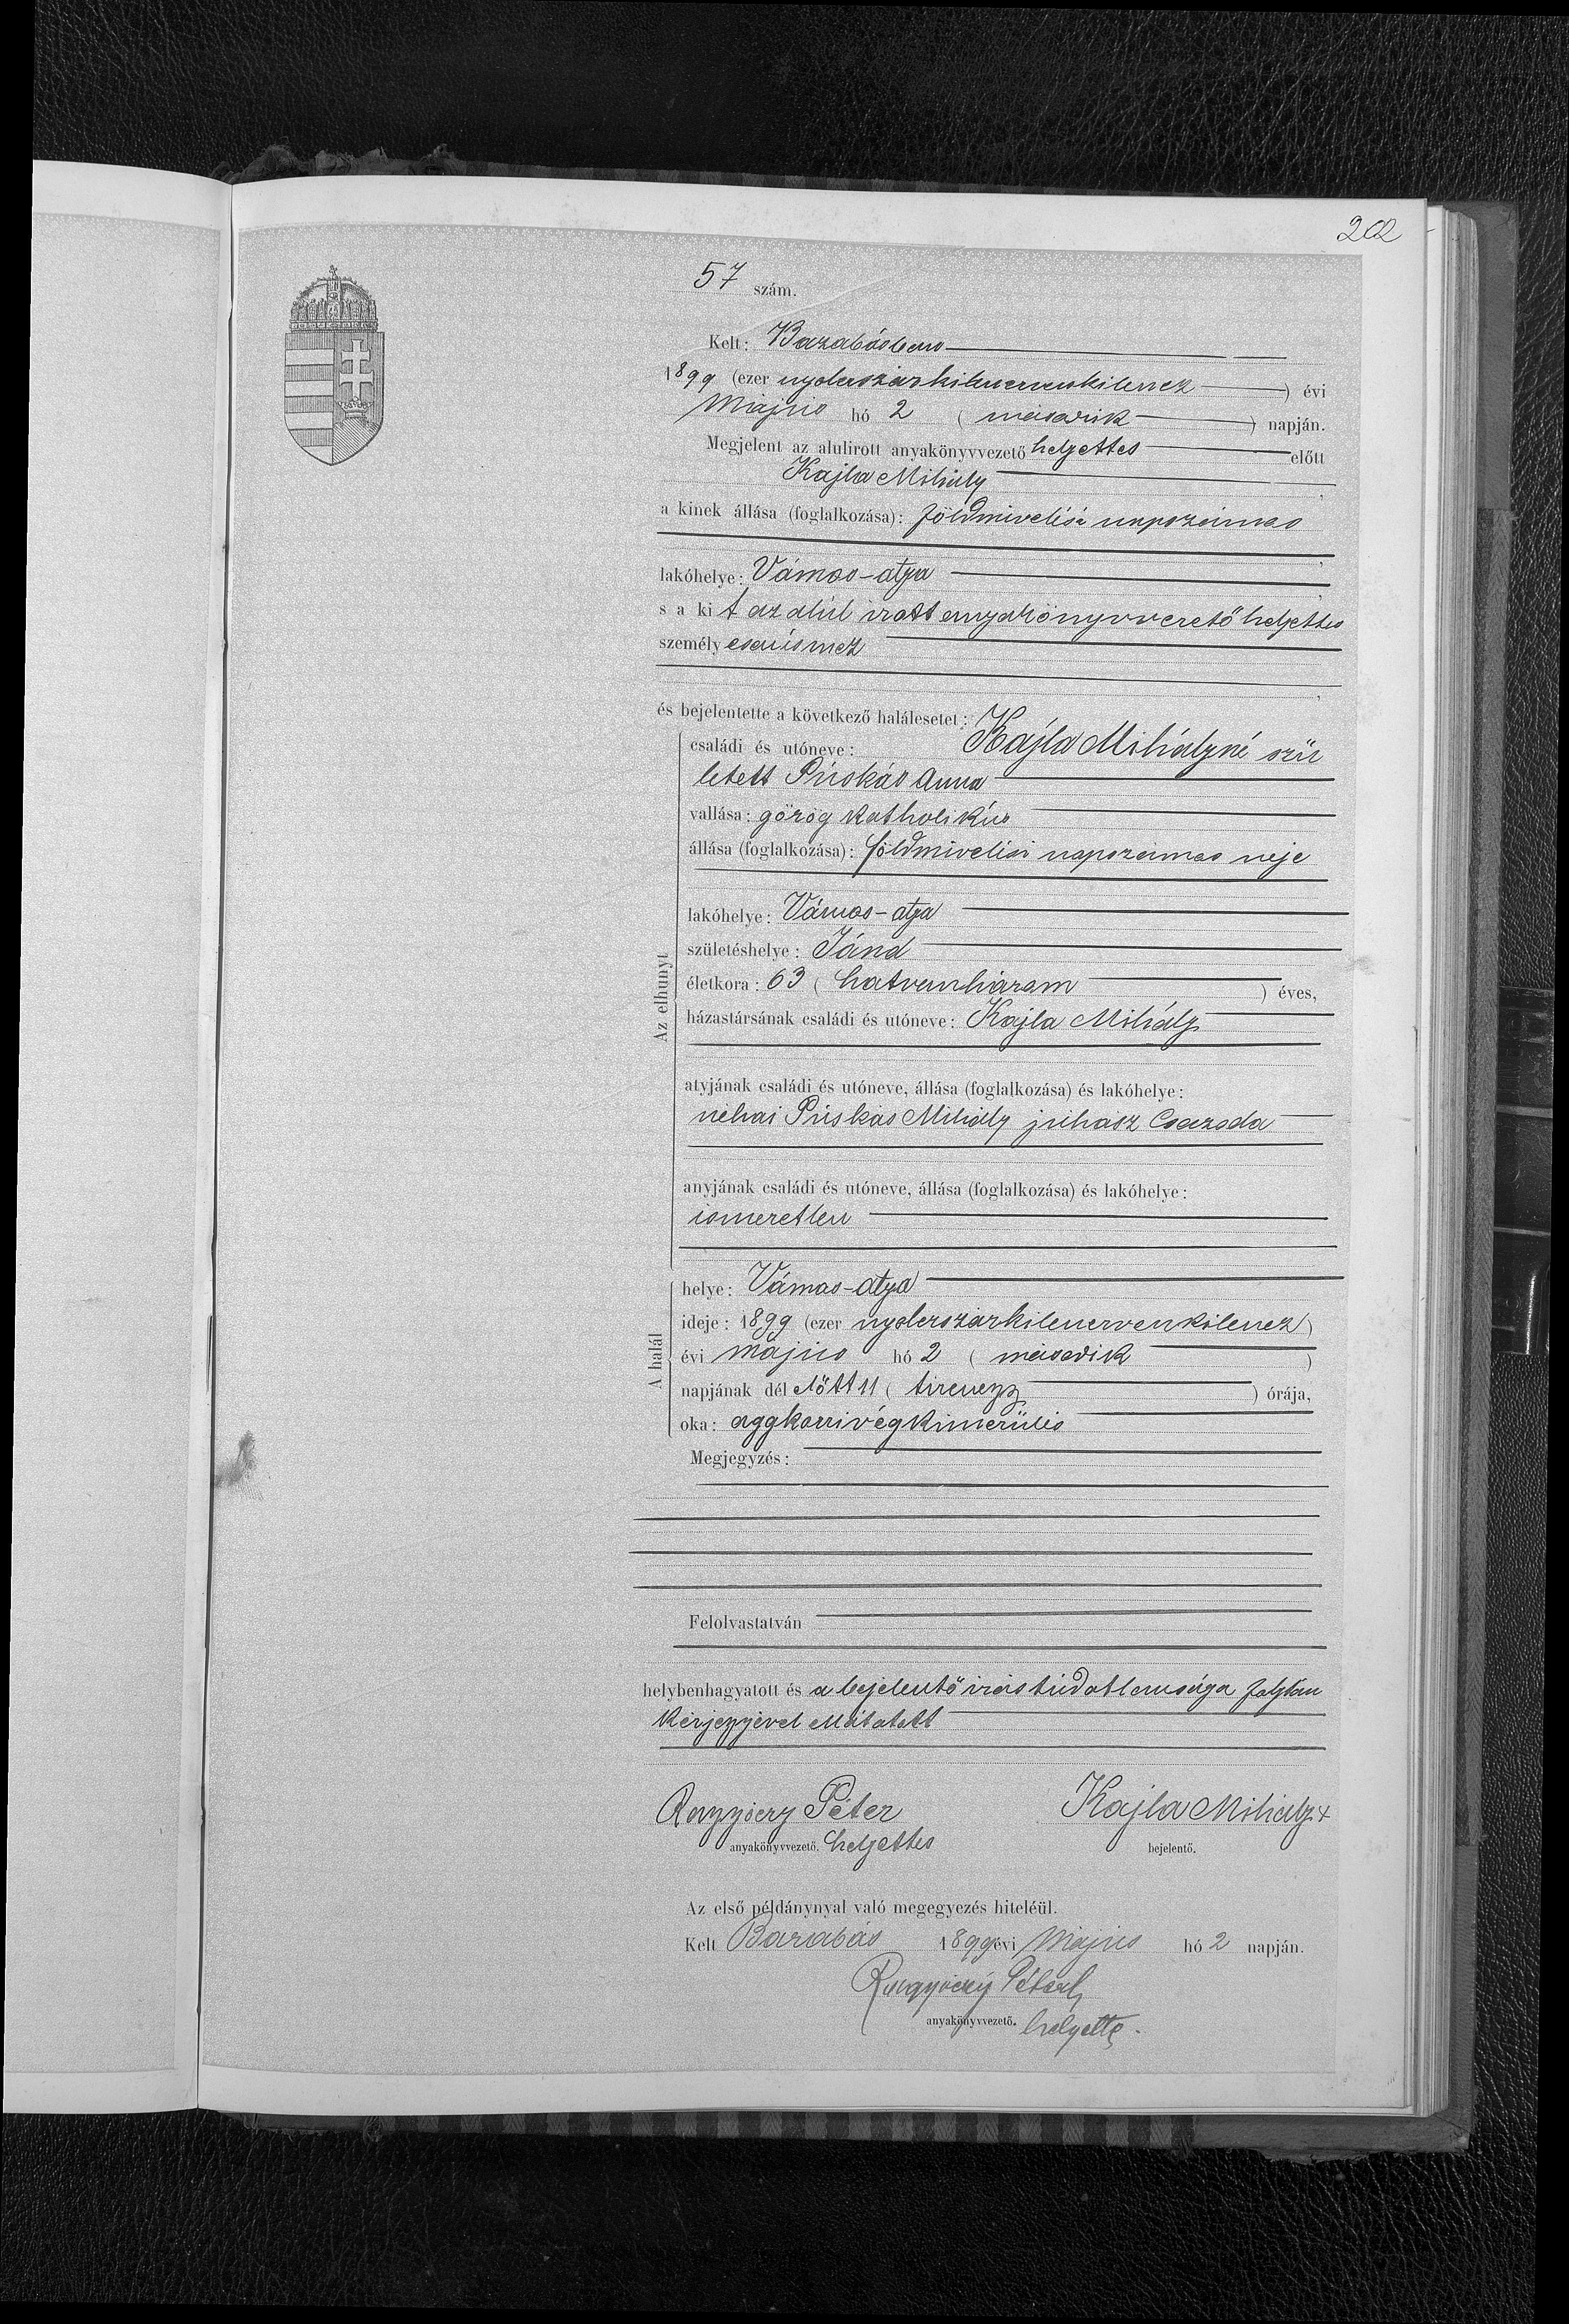 202
57 szám.
Kelt: Barabásban
1899 (ezer nyolczszázkilenczvenkilencz) évi
Május hó 2 (második) napján.
Megjelent az alulirott anyakönyvvezető helyettes előtt
Kajla Mihály,
a kinek állása (foglalkozása): földmivelési napszámos
lakóhelye: Vámos-atya,
s a ki t az alúl irott anyakönyvvezető helyettes
személyesen ismer
és bejelentette a következő halálesetet:
családi és utóneve: Kajla Mihályné szü
letett Púskás Anna
vallása: görög katholikús
állása (foglalkozása): földmivelési napszámos neje
lakóhelye: Vámos-atya
születéshelye: Jánd
Az elhunyt
életkora: 63 (hatvanhárom) éves,
házastársának családi és utóneve: Kajla Mihály
atyjának családi és utóneve, állása (foglalkozása) és lakóhelye:
néhai Púskás Mihály júhász Csaroda
anyjának családi és utóneve, állása (foglalkozása) és lakóhelye:
ismeretlen
helye: Vámos-atya
ideje: 1899 (ezer nyolczszázkilenczvenkilencz)
A halál
évi május hó 2 (második)
napjának dél előtt 11 (tizenegy) órája,
oka: aggkori végkimerülés
Megjegyzés:
Felolvastatván
helybenhagyatott és a bejelentő irástúdatlansága folytán
kézjegyével elláttatott
Péter
Kajla Mihály x
anyakönyvvezető. helyettes
bejelentő.
Az első példánynyal való megegyezés hiteléül.
Kelt Barabás 1899 évi Május hó 2 napján.
anyakönyvvezető. helyettes